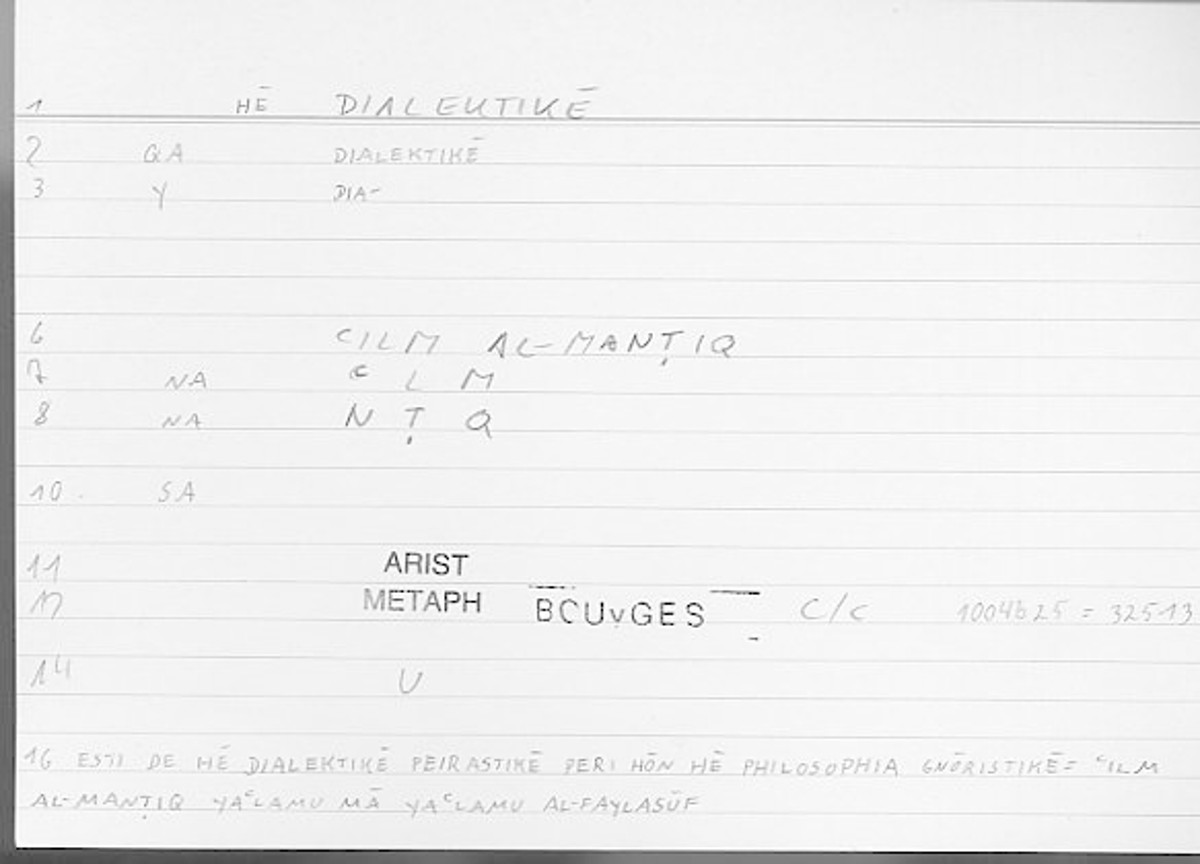 1 HĒ DIALEKTIKĒ
2 QA DIALEKTIKĒ
3 Y DIA-
6 ʿILM AL-MANṬIQ
7 NA ʿ L M
8 NA N Ṭ Q
10. SA
11 ARIST
12 METAPH BOUyGES C/C 1004b25 = 32513
14 U
16 ESTI DE HĒ DIALEKTIKĒ PEIRASTIKĒ PERI HŌN HĒ PHILOSOPHIA GNŌRISTIKĒ = ʿILM
AL-MANṬIQ YAʿLAMU MĀ YAʿLAMU AL-FAYLASŪF